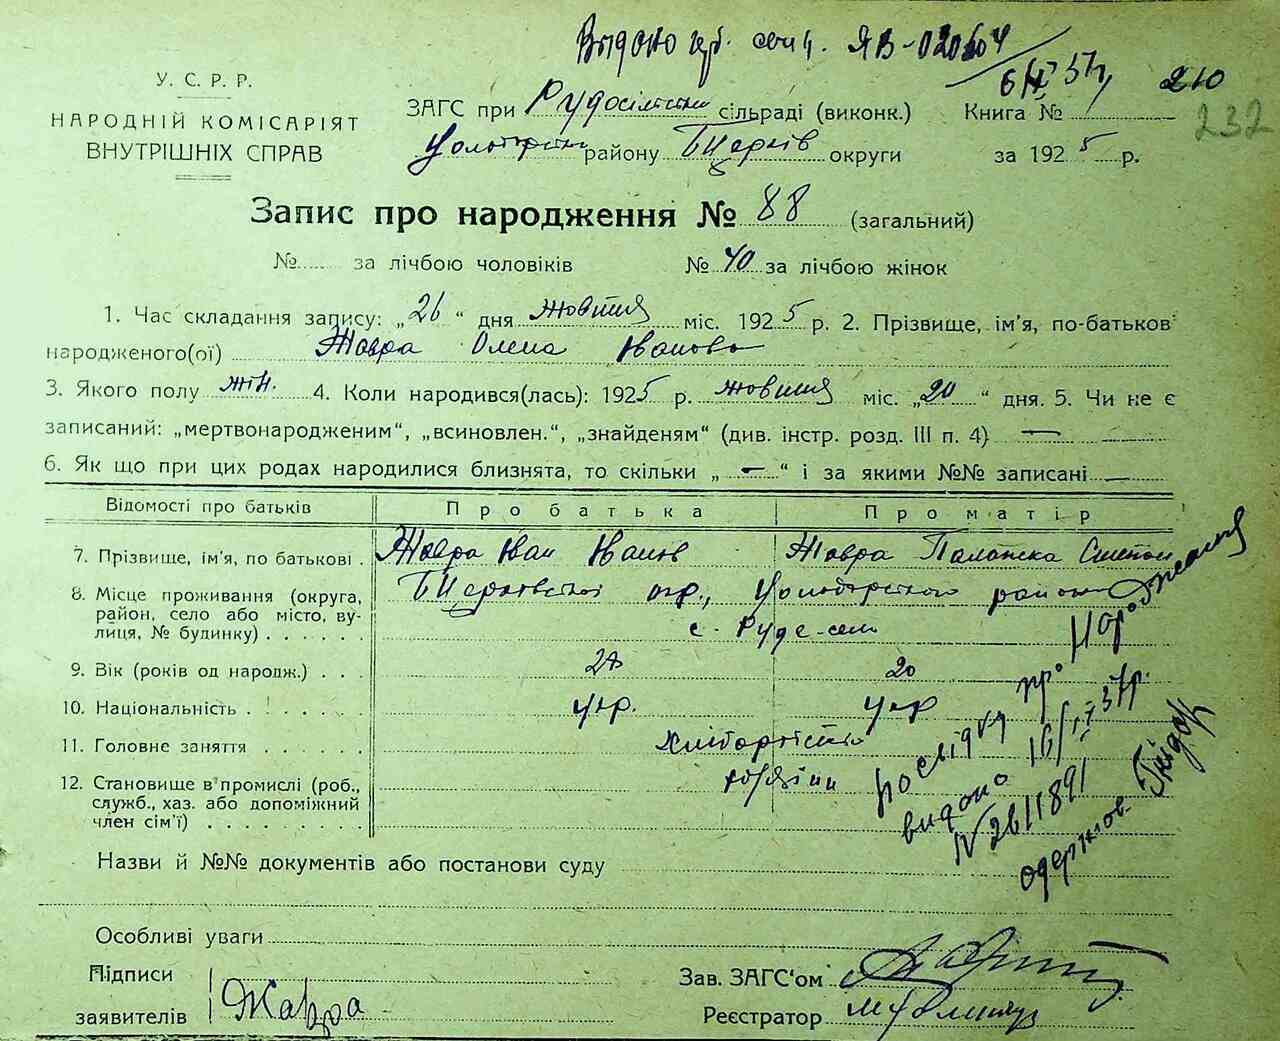 Видано
ЯВ-020604
У. С. Р. Р.
НАРОДНІЙ КОМІСАРІЯТ
ВНУТРІШНІХ СПРАВ
ЗАГС при Рудосільській сільраді (виконк.) Книга № 210
232
району Б Церків округи за 1925 р.
Запис про народження № 88 (загальний)
№ за лічбою чоловіків № 40 за лічбою жінок
1. Час складання запису: „26“ дня жовтня міс. 1925 р. 2. Прізвище, ім'я, по-батьков
народженого(ої) Жавра Олена Іванова
3. Якого полу жін. 4. Коли народився(лась): 1925 р. жовтня міс. „20“ дня. 5. Чи не є
записаний: „мертвонародженим“, „всиновлен.“, „знайденям“ (див. інстр. розд. III п. 4) —
6. Як що при цих родах народилися близнята, то скільки „-“ і за якими №№ записані —
Відомості про батьків Про батька Про матір
7. Прізвище, ім'я, по батькові Жавра Іван Іванов Жавра Палажка Степан
8. Місце проживання (округа, Б Церковської окр., району
район, село або місто, ву- с. Руде-село
лиця, № будинку)
9. Вік (років од народж.) 20
10. Національність укр. укр
11. Головне заняття хліборобство
12. Становище в промислі (роб.,
служб., хаз. або допоміжний
член сім'ї)
посвідку про народження
видано 16/ 37р.
N 2611891
одержов.
Назви й №№ документів або постанови суду
Особливі уваги
Підписи
заявителів Жавра
Зав. ЗАГС'ом
Реєстратор